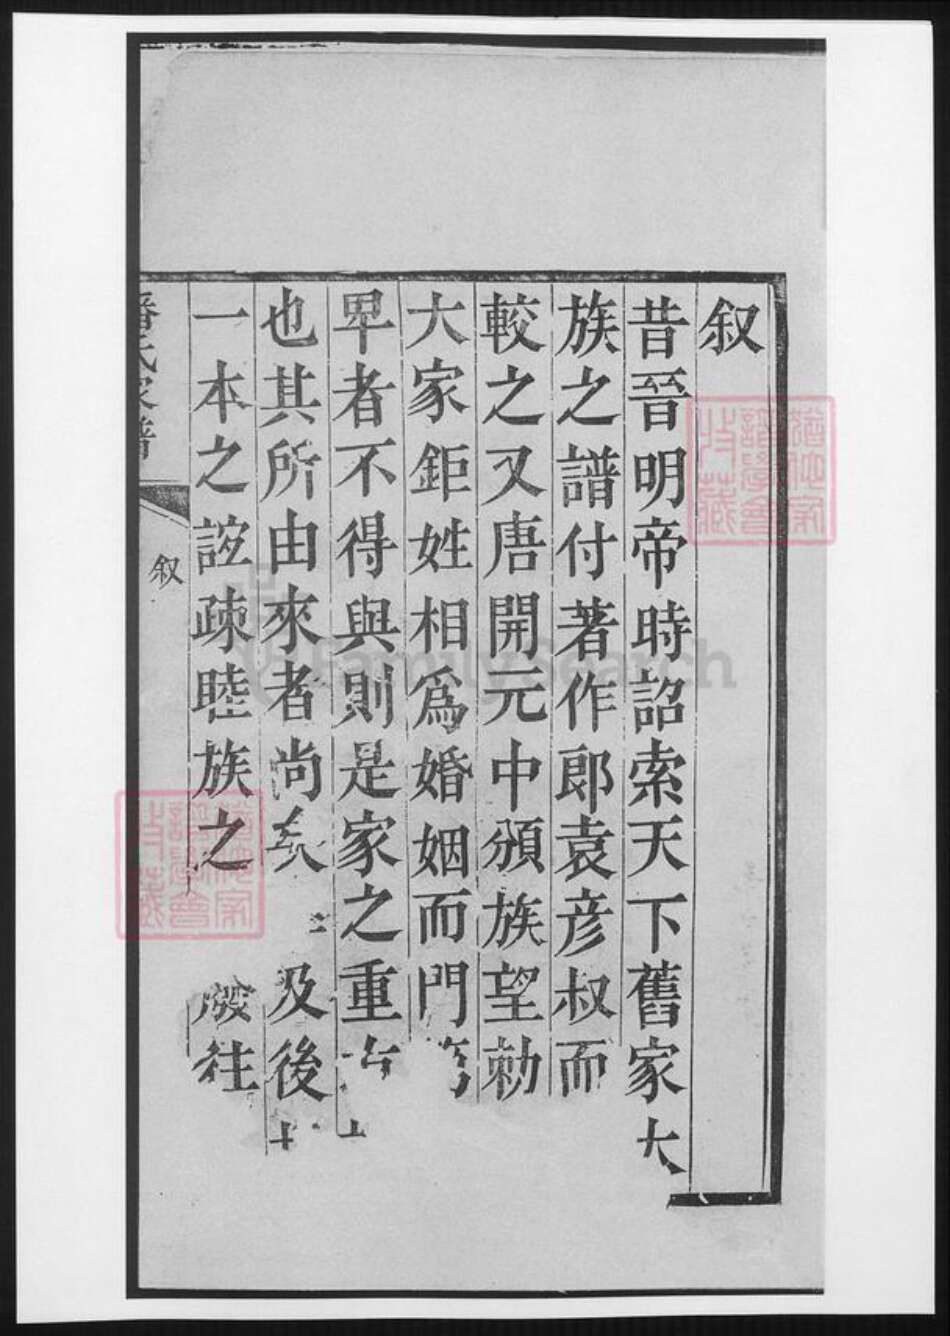 叙
昔晉明帝時詔索天下舊家大
族之譜付著作郎袁彦叔而
較之又唐開元中頒族望勅
大家鉅姓相為婚姻而門
卑者不得與則是家之重
也其所由來者尚矣 及後
一本之誼疎睦族之 廢往
潘氏家譜
叙
FamilySearch